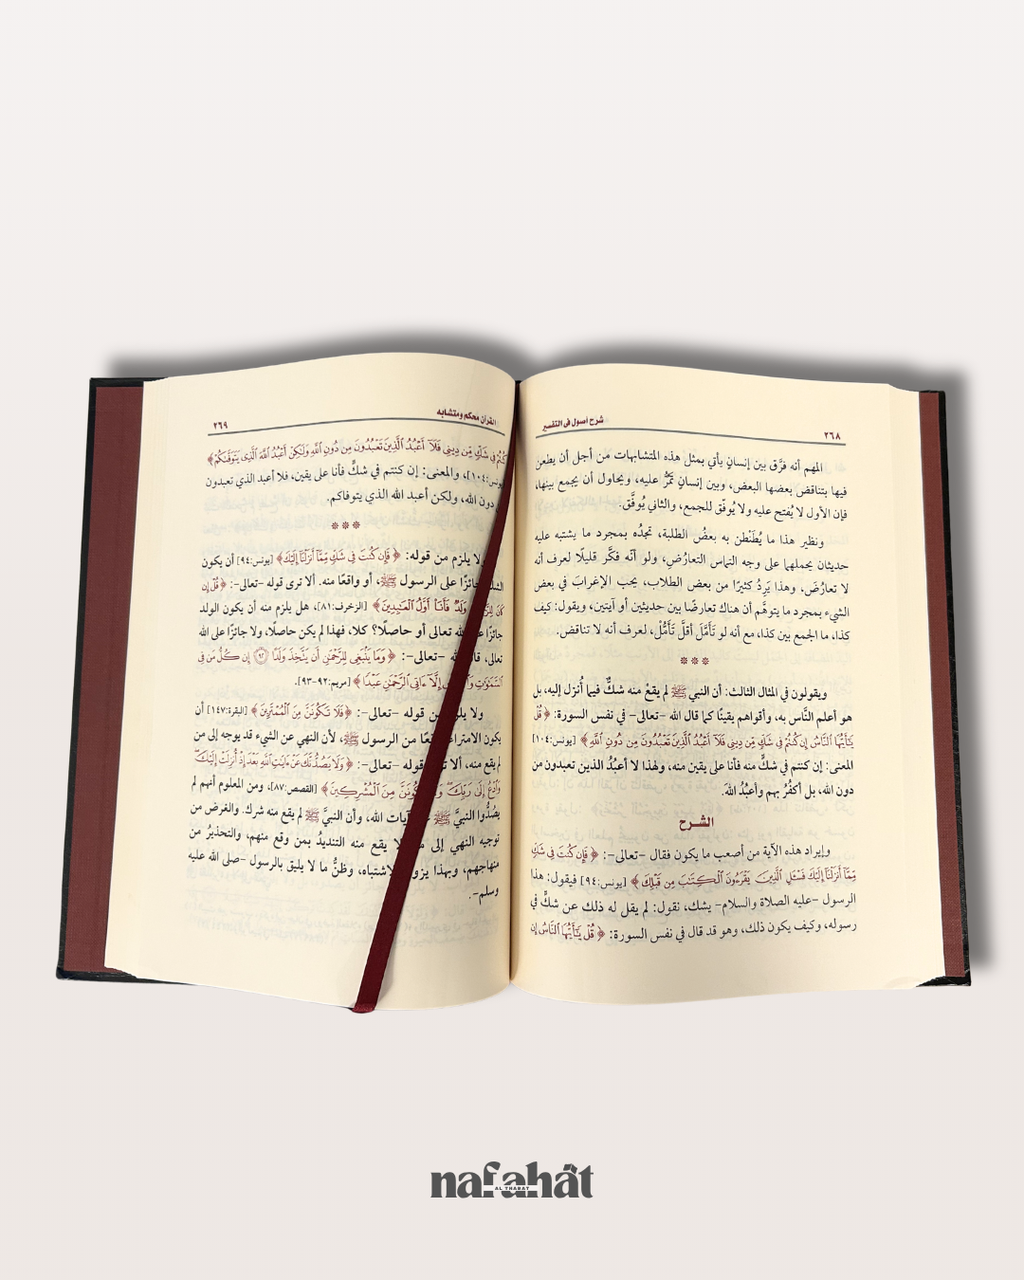 ٢٦٨ شرح أصول في التفسير
المهم أنه فرَّق بين إنسانٍ يأتي بمثل هذه المتشابهات من أجل أن يطعن
فيها بتناقض بعضها البعض، وبين إنسانٍ تمرُّ عليه، ويحاول أن يجمع بينها،
فإن الأول لا يُفتح عليه ولا يُوفّق للجمع، والثاني يُوفَّق.
ونظير هذا ما يُطَنْطن به بعضُ الطلبة، تجدُه بمجرد ما يشتبه عليه
حديثان يحملهما على وجه التماس التعارُضِ، ولو أنَّه فكَّر قليلًا لعرف أنه
لا تعارُضَ، وهذا يَرِدُ كثيرًا من بعض الطلاب، يحب الإغرابَ في بعض
الشيء بمجرد ما يتوهَّم أن هناك تعارضًا بين حديثين أو آيتين، ويقول: كيف
كذا، ما الجمع بين كذا، مع أنه لو تَأَمَّلَ أقلَّ تَأَمُّلْ، لعرف أنه لا تناقض.
***
ويقولون في المثال الثالث: أن النبي ﷺ لم يقعْ منه شكٌّ فيما أُنزل إليه، بل
هو أعلم النَّاس به، وأقواهم يقينًا كما قال الله -تعالى- في نفس السورة: ﴿قُلْ
يَٰٓأَيُّهَا ٱلنَّاسُ إِن كُنتُمْ فِي شَكٍّ مِّن دِينِي فَلَآ أَعْبُدُ ٱلَّذِينَ تَعْبُدُونَ مِن دُونِ ٱللَّهِ﴾ [يونس:١٠٤]
المعنى: إن كنتم في شكٍّ منه فأنا على يقين منه، ولهذا لا أعبُدُ الذين تعبدون من
دون الله، بل أكفُرُ بهم وأعبُدُ اللهَ.
الشرح
وإيراد هذه الآية من أصعب ما يكون فقال -تعالى-: ﴿فَإِن كُنتَ فِي شَكٍّ
مِّمَّآ أَنزَلْنَآ إِلَيْكَ فَسْـَٔلِ ٱلَّذِينَ يَقْرَءُونَ ٱلْكِتَٰبَ مِن قَبْلِكَ﴾ [يونس:٩٤] فيقول: هذا
الرسول -عليه الصلاة والسلام- يشك، نقول: لم يقل له ذلك عن شكٍّ في
رسوله، وكيف يكون ذلك، وهو قد قال في نفس السورة: ﴿قُلْ يَٰٓأَيُّهَا ٱلنَّاسُ إِن
القرآن محكم ومتشابه ٢٦٩
كُنتُمْ فِي شَكٍّ مِّن دِينِي فَلَآ أَعْبُدُ ٱلَّذِينَ تَعْبُدُونَ مِن دُونِ ٱللَّهِ وَلَٰكِنْ أَعْبُدُ ٱللَّهَ ٱلَّذِي يَتَوَفَّىٰكُمْ﴾
١٠٤]، والمعنى: إن كنتم في شكٍّ فأنا على يقين، فلا أعبد الذي تعبدون
دون الله، ولكن أعبد الله الذي يتوفاكم.
***
لا يلزم من قوله: ﴿فَإِن كُنتَ فِي شَكٍّ مِّمَّآ أَنزَلْنَآ إِلَيْكَ﴾ [يونس:٩٤] أن يكون
جائزًا على الرسول ﷺ، أو واقعًا منه. ألا ترى قوله -تعالى-: ﴿قُلْ إِن
وَلَدٌ فَأَنَا۠ أَوَّلُ ٱلْعَٰبِدِينَ﴾ [الزخرف:٨١]، هل يلزم منه أن يكون الولد
جائزًا الله تعالى أو حاصلًا؟ كلا، فهذا لم يكن حاصلًا، ولا جائزًا على الله
تعالى، -تعالى-: ﴿وَمَا يَنۢبَغِي لِلرَّحْمَٰنِ أَن يَتَّخِذَ وَلَدًا ۝ إِن كُلُّ مَن فِي
ٱلسَّمَٰوَٰتِ إِلَّآ ءَاتِي ٱلرَّحْمَٰنِ عَبْدًا﴾ [مريم:٩٢-٩٣].
ولا من قوله -تعالى-: ﴿فَلَا تَكُونَنَّ مِنَ ٱلْمُمْتَرِينَ﴾ [البقرة:١٤٧] أن
يكون الامتراء من الرسول ﷺ، لأن النهي عن الشيء قد يوجه إلى من
لم يقع منه، ألا قوله -تعالى-: ﴿وَلَا يَصُدُّنَّكَ عَنْ ءَايَٰتِ ٱللَّهِ بَعْدَ إِذْ أُنزِلَتْ إِلَيْكَ
وَٱدْعُ إِلَىٰ رَبِّكَ مِنَ ٱلْمُشْرِكِينَ﴾ [القصص:٨٧]، ومن المعلوم أنهم لم
يصُدُّوا النبيَّ ﷺ آيات الله، وأن النبيَّ ﷺ لم يقع منه شرك. والغرض من
توجيه النهي إلى لا يقع منه التنديدُ بمن وقع منهم، والتحذيرُ من
منهاجهم، وبهذا يزول الاشتباه، وظنُّ ما لا يليق بالرسول -صلى الله عليه
وسلم-.
nafahat
AL THABAT